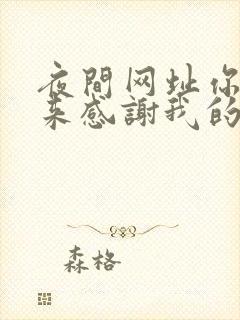 夜間网址你
来感謝我的
森格